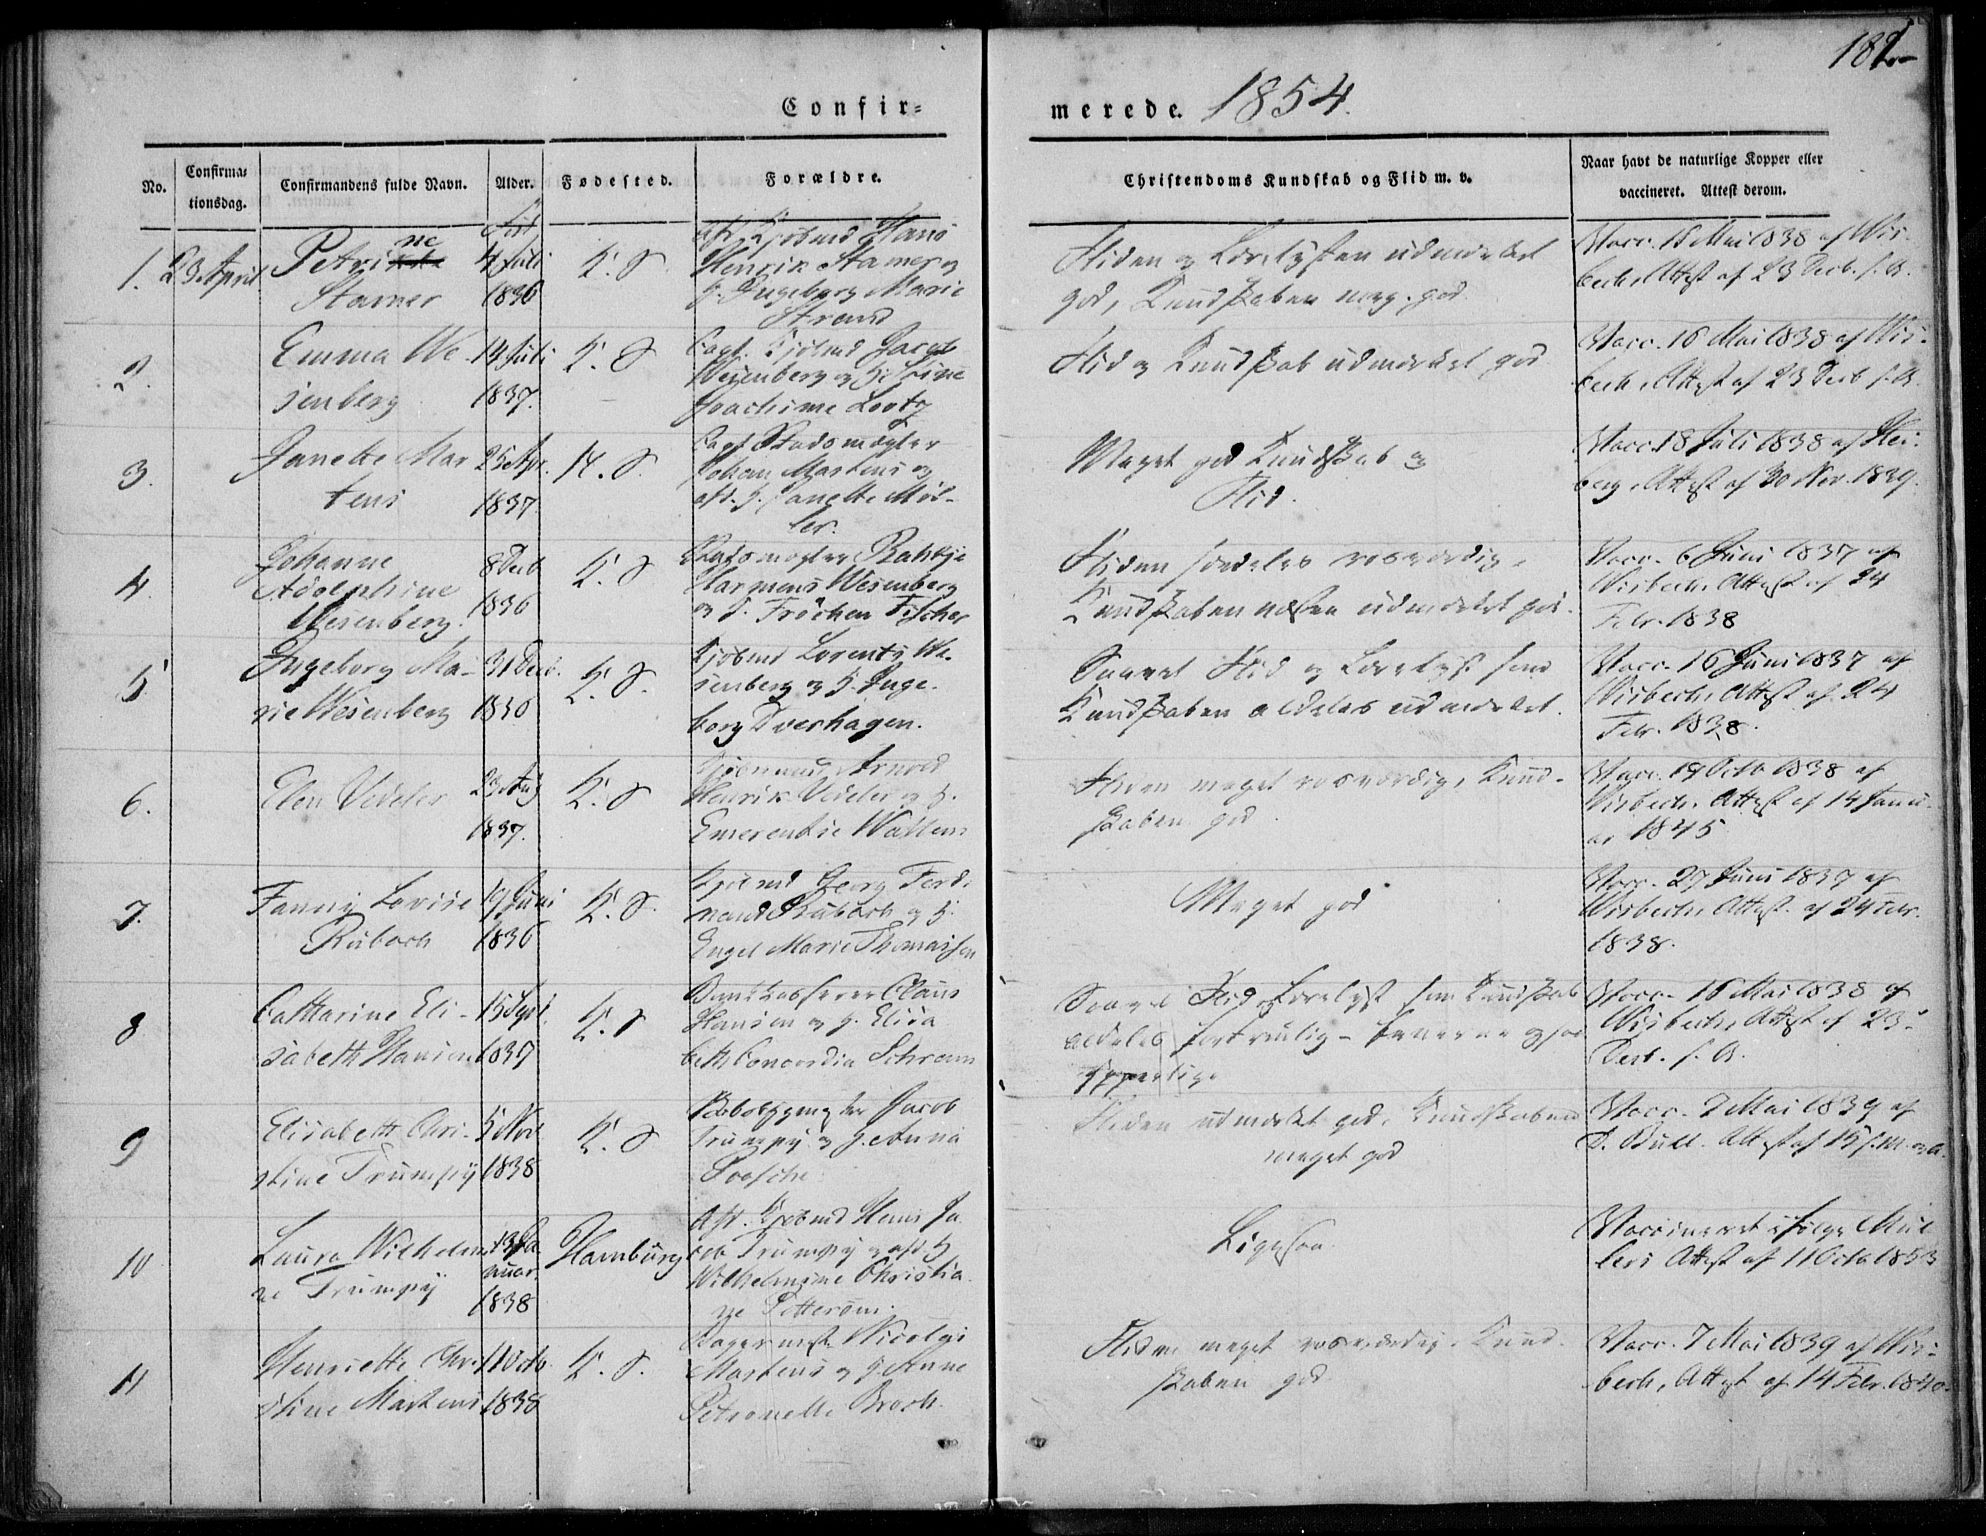 182
Confir=
merede. 1854.
No.
Confirma=
tionsdag.
Confirmandens fulde Navn.
Alder.
Fødested.
Forældre.
Christendoms Kundskab og Flid m. v.
Naar havt de naturlige Kopper eller
vaccineret. Attest derom.
1. 23 April
Petrine
Stamer
Født
4 Juli
1836
K. S.
Afd. Kjøbmd Hans
Henrik Stamer og
H. Ingeborg Marie
Strand
Fliden og Lærelysten udmærket
god, Kundskaben meg. god
Vacc. 15 Mai 1838 af Wis-
bech, Attest af 23 Decb. s. A.
2.
Emma We-
senberg
14 Juli
1837.
K. S
Kjøbmd Jacob
Wesenberg og H. Stine
Joachime
Flid og Kundskab udmærket god
Vacc. 16 Mai 1838 af Wis-
bech, Attest af 23 Decb s. A.
3.
Janette Mar
tens
25 Apr.
1837
K. S.
Stadsmægler
Johan Martens og
afd. H. Janette Møl-
ler.
Meget god Kundskab og
Flid.
Vacc. 18 Juli 1838 af Hei-
berg, Attest af 30 Nov. 1839.
4.
Johanne
Adolphine
Wesenberg.
8 Decb
1836
K. S
Stadsmægler Bahtje
Harmens Wesenberg
og H. Tröchen Fischer
Fliden særdeles rosværdig,
Kundskaben næsten udmærket god.
Vacc. 6 Juni 1837 af
Wisbech, Attest af 24
Febr. 1838
5
Ingeborg Ma-
rie Wesenberg
31 Decb.
1836
K. S.
Kjøbmd Lorentz We-
senberg og H. Inge-
borg Dverhagen.
Saavel Flid og Lærelyst som
Kundskaben aldeles udmærket.
Vacc. 16 Juni 1837 af
Wisbech, Attest af 24
Febr. 1838.
6.
Elen Vedeler
23 Aug
1837.
K. S
Kjøbmand Arnold
Henrik Vedeler og H.
Emerentie Waltens
Fliden meget rosværdig, Kund-
skaben god.
Vacc. 19 Octb 1838 af
Wisbech, Attest af 14 Janu-
ar 1845
7.
Fanny Lovise
Rubach
19 Juni
1836
K. S.
Kjøbmd Georg Ferdi
nand Rubach og H.
Engel Marie Thomassen
Meget god
Vacc. 27 Juni 1837 af
Wisbech, Attest. af 24 Febr.
1838.
8
Catharine Eli-
sabeth Hansen
15 Sept.
1837
K. S
Bankkasserer Claus
Hansen og H. Elisa
beth Concordia Schram
Saavel Flid, Lærelyst som Kundskab
aldeles fortrinlig -
Vacc. 16 Mai 1838 af
Wisbech, Attest af 23
Decb. s. A.
9
Elisabeth Chri-
stine Trumpÿ
5 Nov.
1838
K. S
Rebslager Jacob
Trumpÿ og H. Anna
Fliden udmærket god, Kundskaben
meget god
Vacc. 7 Mai 1839 af
D. Bull. Attest af 15 s. M. og A.
10
Laura Wilhelmi
ne Trumpÿ
13 Ja
nuar.
1838
Hamburg
Afd. Kjøbmd Hans Ja
cob Trumpÿ og afd H
Wilhelmine Christia
ne
Ligesaa
Vaccineret ifølge Mül
lers Attest af 11 Octb 1853
11
Henriette Chri
stine Martens
11 Octb
1838
K. S.
Bagermester Nicolai
Martens og H. Anne
Petronelle Broch.
Fliden meget rosværdig, Kund-
skaben god
Vacc. 7 Mai 1839 af Wis-
bech, Attest af 14 Febr. 1840.